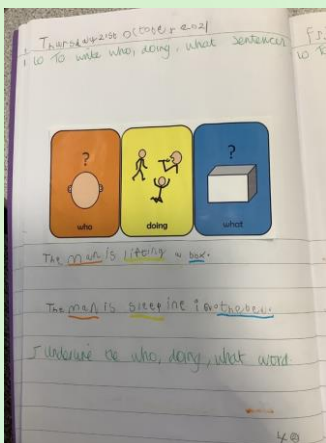 Thursday 21st October 2021
LO To write who, doing, what sentences
?
?
who
doing
what
The man is lifting a box.
The man is sleeping
I underline who, doing, what word